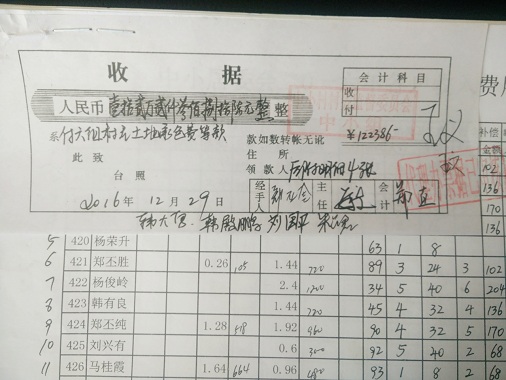 收 据
会计科目
人民币 壹拾贰万贰仟叁佰捌拾陆元整 整
收
付
¥122386-
系付六组村民土地承包费等款
款如数转帐无讹
此致
住 所
台照
领款人 后附明附4张
2016年 12月 29日
经手人
主任
会计
补偿
金额
102
136
170
136
5 420 杨荣升 63 1 8
6 421 郑丕胜 0.26 105 1.44 720 89 3 24 3 102
7 422 杨俊岭 2.4 1200 34 5 40 6 204
8 423 韩有良 1.44 720 45 4 32 4 136
9 424 郑丕纯 1.28 518 1.92 960 90 4 32 5 170
10 425 刘兴有 0.6 300 92 5 40 2 68
11 426 马桂霞 1.64 664 0.96 480 93 1 8 2 68